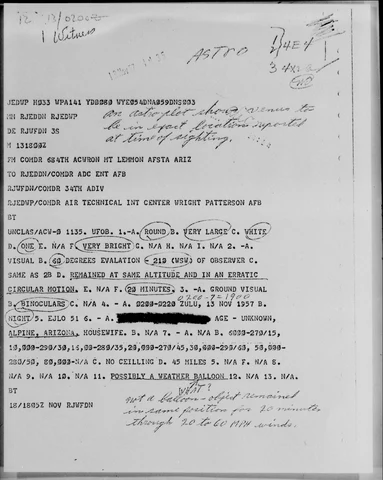 1 Witness
ASTRO
JEDWP H033 WPA141 YDB080 WYE054DNA059DNSB03
MM RJEDDN RJEDWP
DE RJWFDN 3S
M 131800Z
FM COMDR 684TH ACWRON MT LEMMON AFSTA ARIZ
TO RJEDDN/COMDR ADC ENT AFB
RJWFDN/COMDR 34TH ADIV
RJEDWP/COMDR AIR TECHNICAL INT CENTER WRIGHT PATTERSON AFB
an astro plot shows venus to
be in exact location reported
at time of sighting.
BT
UNCLAS/ACW-O 1135. UFOB. 1.-A. ROUND B. VERY LARGE C. WHITE
D. ONE E. N/A F. VERY BRIGHT G. N/A H. N/A I. N/A 2. -A.
VISUAL B. 60 DEGREES EVALATION - 210 (WSW) OF OBSERVER C.
SAME AS 2B D. REMAINED AT SAME ALTITUDE AND IN AN ERRATIC
CIRCULAR MOTION. E. N/A F. 20 MINUTES. 3. -A. GROUND VISUAL
B. BINOCULARS C. N/A 4. - A. 0200-0220 ZULU, 13 NOV 1957 B.
0200-7=1900
NIGHT/5. EJLO 51 6. -A. AGE - UNKNOWN,
ALPINE, ARIZONA, HOUSEWIFE. B. N/A 7. - A. N/A B. 6000-270/15,
10,000-290/30, 16,000-280/35, 20,000-270/45, 30,000-290/60, 50,000-
280/50, 80,000-N/A C. NO CEILLING D. 45 MILES 5. N/A F. N/A 8.
N/A 9. N/A 10. N/A 11. POSSIBLY A WEATHER BALLOON 12. N/A 13. N/A.
BT
18/1805Z NOV RJWFDN
not a balloon - object remained
in same position for 20 minutes
through 20 to 60 MPH winds.